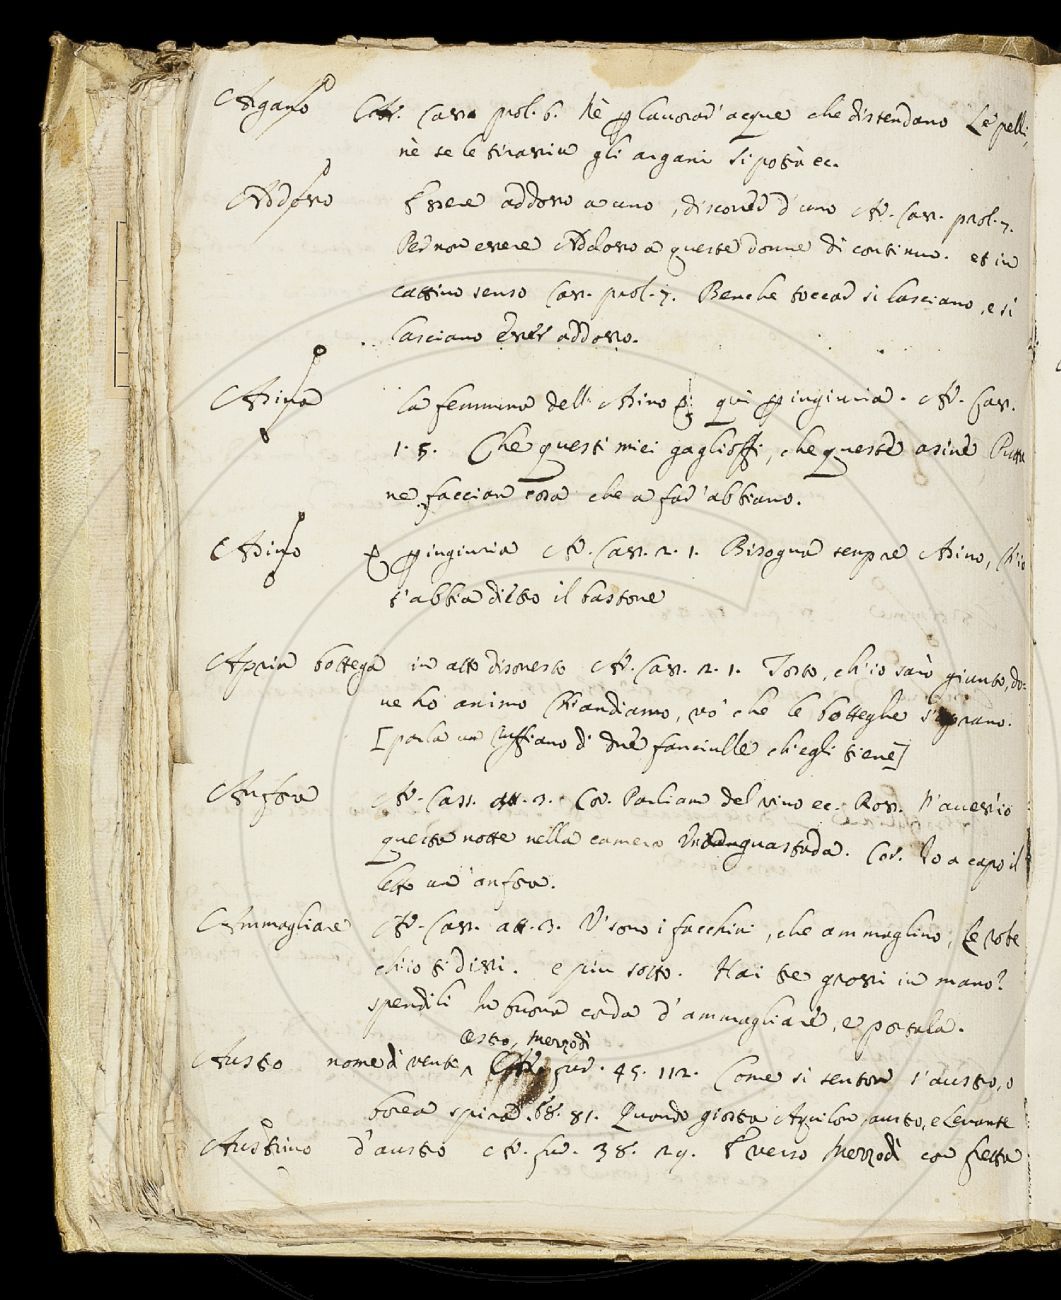 Argano Ar. Cass. prol. 6. Nè p lavorar d'acque che distendano le pelli,
nè se le tirasin gli argani si potrà ec.
Addosso Essere addosso a uno, disconcio d'uno Ar. Cas. prol. 7.
Per non essere Addosso a queste donne di continuo. et in
cattivo senso Cas. prol. 7. Benche toccar si lasciano, e si
lasciano addosso.
Asina la femmina dell' Asino qui p ingiuria. Ar. Cas.
1. 5. Che questi miei gaglioffi, che queste asine Putta
ne faccian cosa che a far' abbiano.
Asino p ingiuria Ar. Cas. 2. 1. Bisogna sempre Asino, ch'io
t'abbia dietro il bastone
Aprir bottega in atto disonesto Ar. Cas. 2. 1. Tosto, ch'io sarò giunto, do=
ve ho animo Ch'andiamo, vo' che le botteghe s'aprano.
[parla un Ruffiano di due fanciulle ch'egli tiene]
Anfora Ar. Cass. att. 3. Cor. Parliam del vino ec. Ros. N'avess'io
questa notte nella camera guastada. Cor. Io a capo il
letto un' anfora.
Ammagliare Ar. Cas. att. 3. V'sono i facchini, che ammaglino, le robe
ch'io ti dissi. e più sotto. Hai tre grossi in mano?
spendili In buona corda d'ammagliare, e portala.
Ostro, Merzodì
Austro nome di vento, fur. 45. 112. Come si senton s'austro, o
borea spira. 81. Quando giostra Aquilone, austro, e levante
Austrino d'austro Ar. fur. 38. 29. E verso Merzodì con fretta